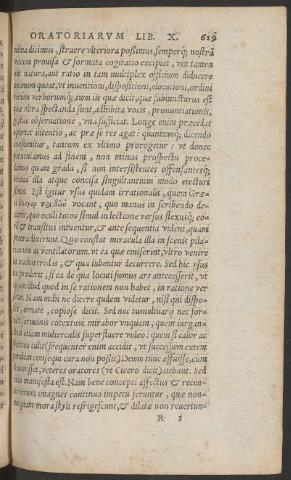 ORATORIARVM LIB. X. 629
dicimus, struere vlteriora possimus, semperq; nostrã
vocem prouisa & formata cogitatio excipiat, vix tamen
natura, aut ratio in tam multiplex officium diducere
queat, vt inuentioni, dispositioni, elocutioni, ordini
rerum verborumq;, tum iis quæ dicit, quæ subiuncturus est
vltra spectanda sunt, adhibita vocis, pronuntiationis,
gestus obseruatione, vna sufficiat. Longe enim præcedat
oportet intentio, ac præ se res agat: quantumq; dicendo
consumitur, tantum ex vltimo prorogetur: vt donec
perueniamus ad finem, non minus prospectu proce-
damus quàm gradu, si non intersistentes offensantesq;
illa atque concisa singultantium modo eiecturi
sumus. Est igitur vsus quidam irrationalis, quem Græ-
ci vocant, quo manus in scribendo de-
currit, quo oculi totos simul in lectione versus flexusq; eo-
rũ & transitus intuentur, & ante sequentia vident, quàm
priora dixerunt. Quo constat miracula illa in scenis pila-
riorum ac ventilatorum, vt ea quæ emiserint, vltro venire
in manus credas, & qua iubentur decurrere. Sed hic vsus
ita proderit, si ea de qua locuti sumus ars antecesserit, vt
ipsum illud quod in se rationem non habet, in ratione ver
setur. Nam mihi ne dicere qudem videtur, nisi qui dispo-
sitè, ornatè, copiosè dicit. Sed nec tumultuarij nec for-
tuiti sermonis cõtextum mirabor vnquam, quem iurgan-
tibus etiam mulierculis superfluere video: quem si calor ac
spiritus tulit (frequenter enim accidit, vt successum extem
poralem consequi cura nõ possit) Deum tunc affuisse, cùm
euenisset, veteres oratores (vt Cicero dicit) aiebant. Sed
ratio manifesta est. Nam bene concepti affectus & recen-
tes rerum imagines continuo impetu feruntur, quæ non-
nunquam mora styli refrigescunt, & dilatæ non reuertun-
R 3